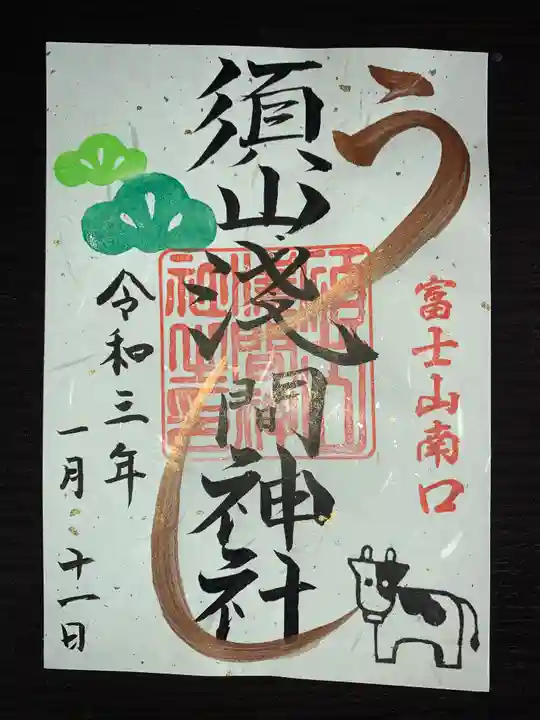 う
富士山南口
須山淺間神社
令和三年
一月十一日